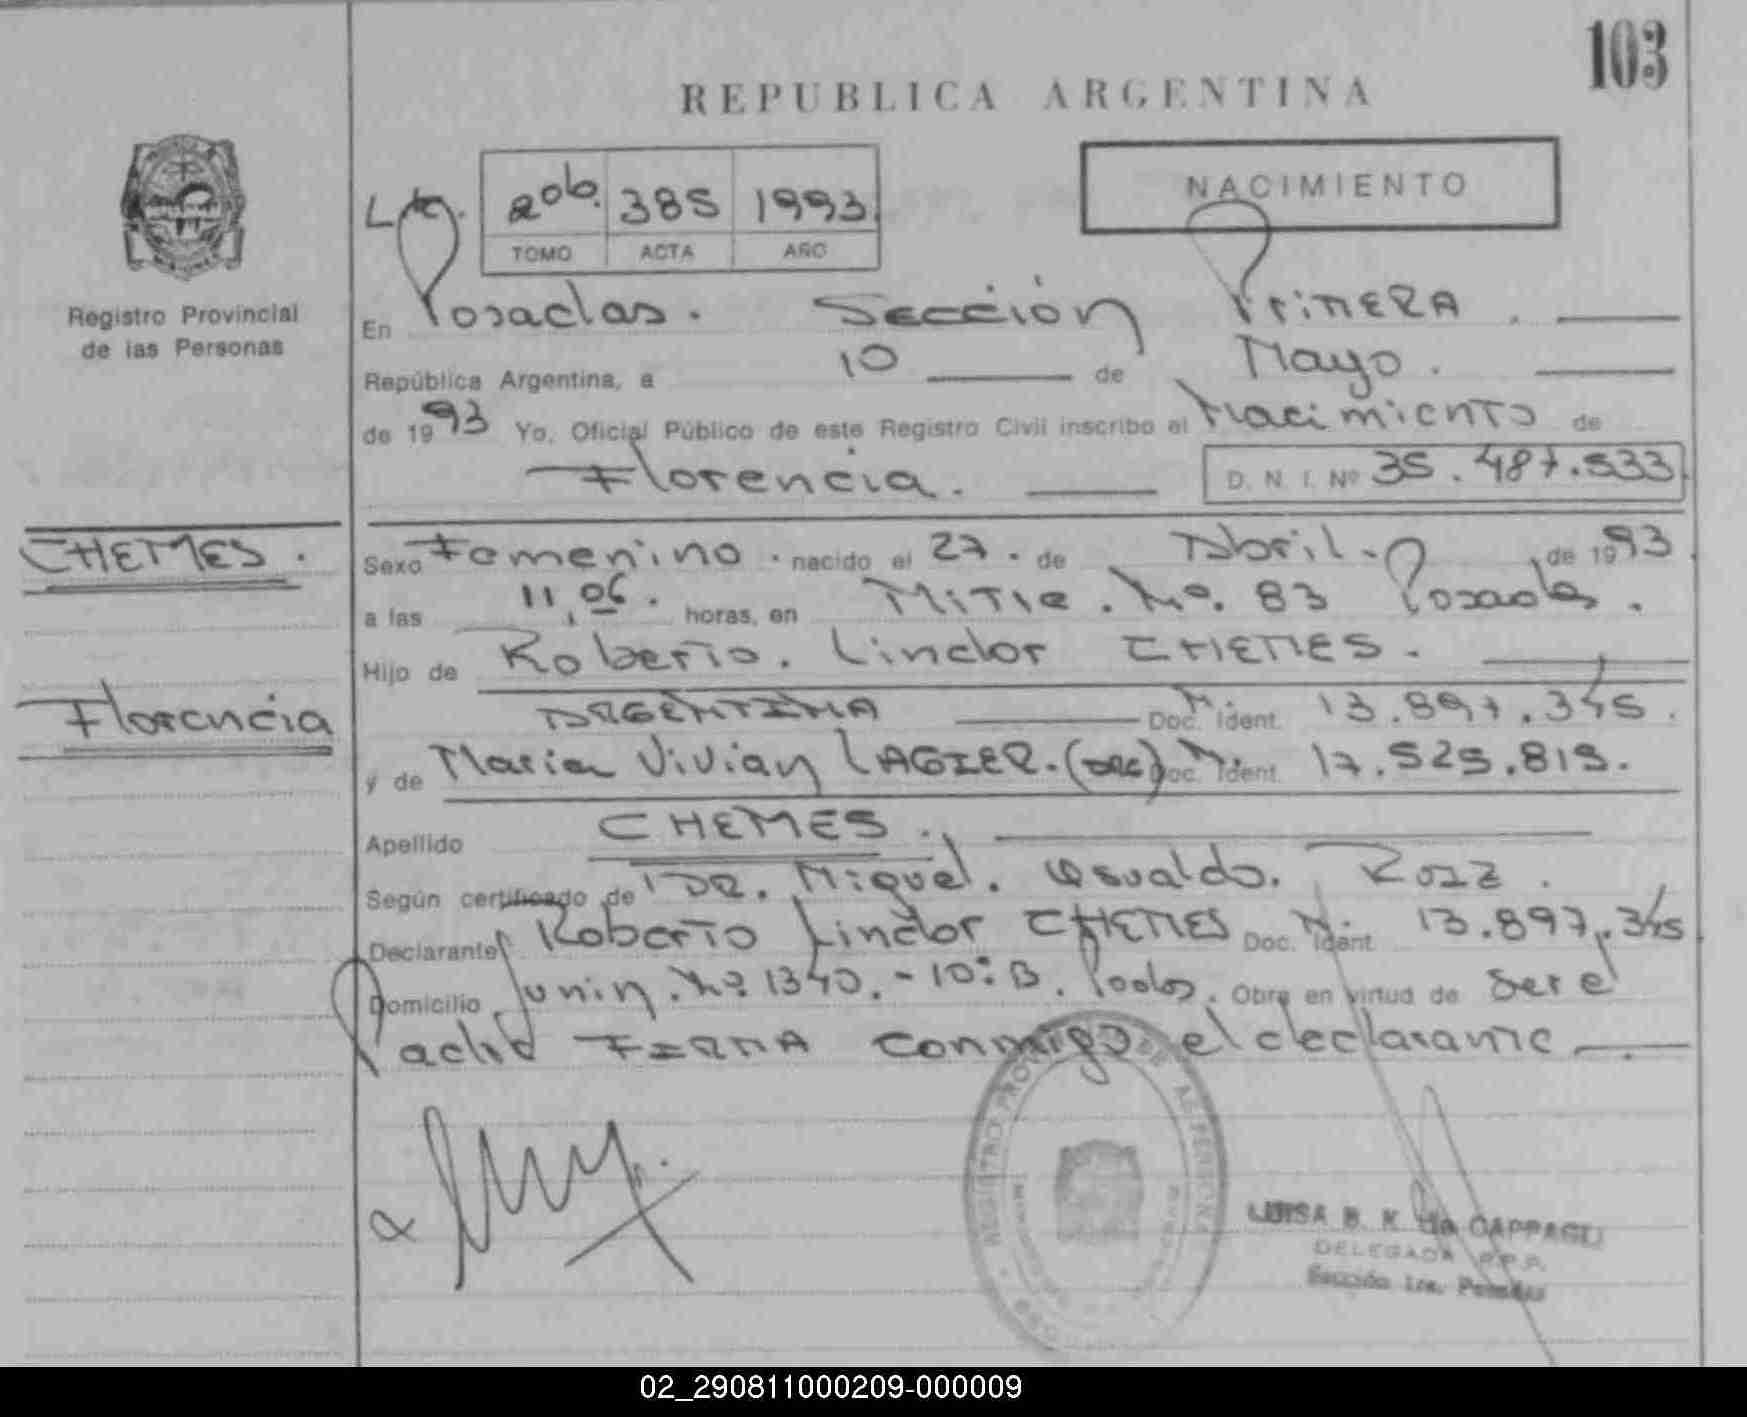 103
REPUBLICA ARGENTINA
NACIMIENTO
206. 385 1993
TOMO ACTA AÑO
Registro Provincial
de las Personas
En Posadas. Sección Primera.
República Argentina, a 10 de Mayo.
de 1993 Yo, Oficial Público de este Registro Civil inscribo el Nacimiento de
Florencia. D. N. I. Nº 35.487.533
CHEMES.
Florencia
Sexo Femenino. nacido el 27. de Abril. de 1993
a las 11,06. horas, en Mitre. Nº. 83 Posadas.
Hijo de Roberto. Lindor CHEMES.
ARGENTINA Doc. Ident. 13.897.345.
y de Maria Vivian LAGIER. (ARG) Doc. Ident. 17.525.819.
Apellido CHEMES.
Según certificado de DR. Miguel. Osvaldo.
Declarante Roberto Lindor CHEMES Doc. Ident. 13.897.345
Domicilio Junin. Nº. 1340. - 10º B. Pdas. Obra en virtud de Ser el
Padre FIRMA conmigo el declarante
REGISTRO PROVINCIAL DE LAS PERSONAS
LUISA B. K. de
DELEGADA R.P.P.
Sección 1ra. Posadas
02_290811000209-000009